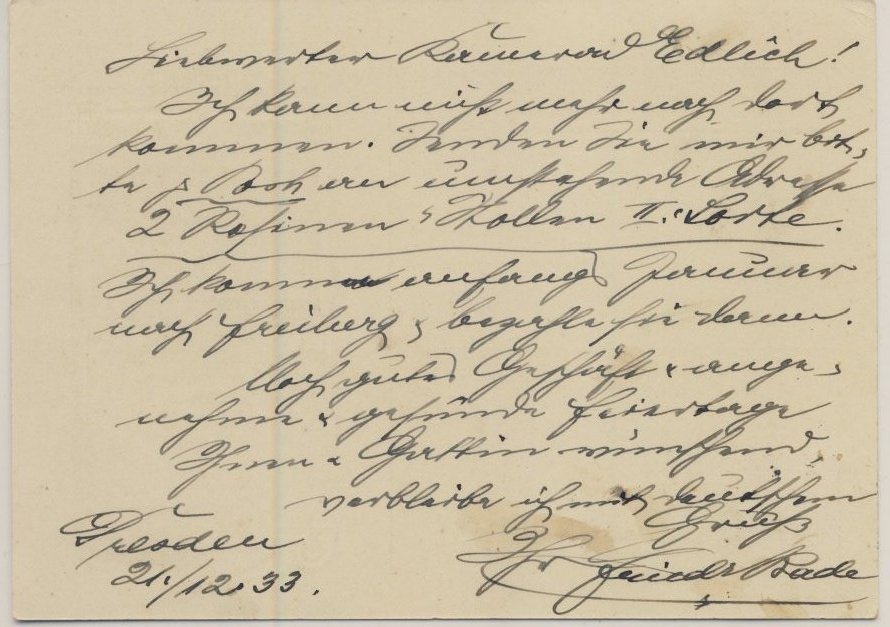 Liebwerter Kamerad Edlich!
Ich kann nicht mehr nach dort
kommen. Senden Sie mir bit-
te p. Post an umstehende Adresse
2 Rosinen-Stollen II. Sorte.
Ich komme anfangs Januar
nach Freiberg & bezahle sie dann.
Noch gutes Geschäft & ange-
nehme & gesunde Feiertage
Ihnen & Gattin wünschend,
verbleibe ich mit deutschem
Gruß
Dresden
21./12.33.
Ihr Bade